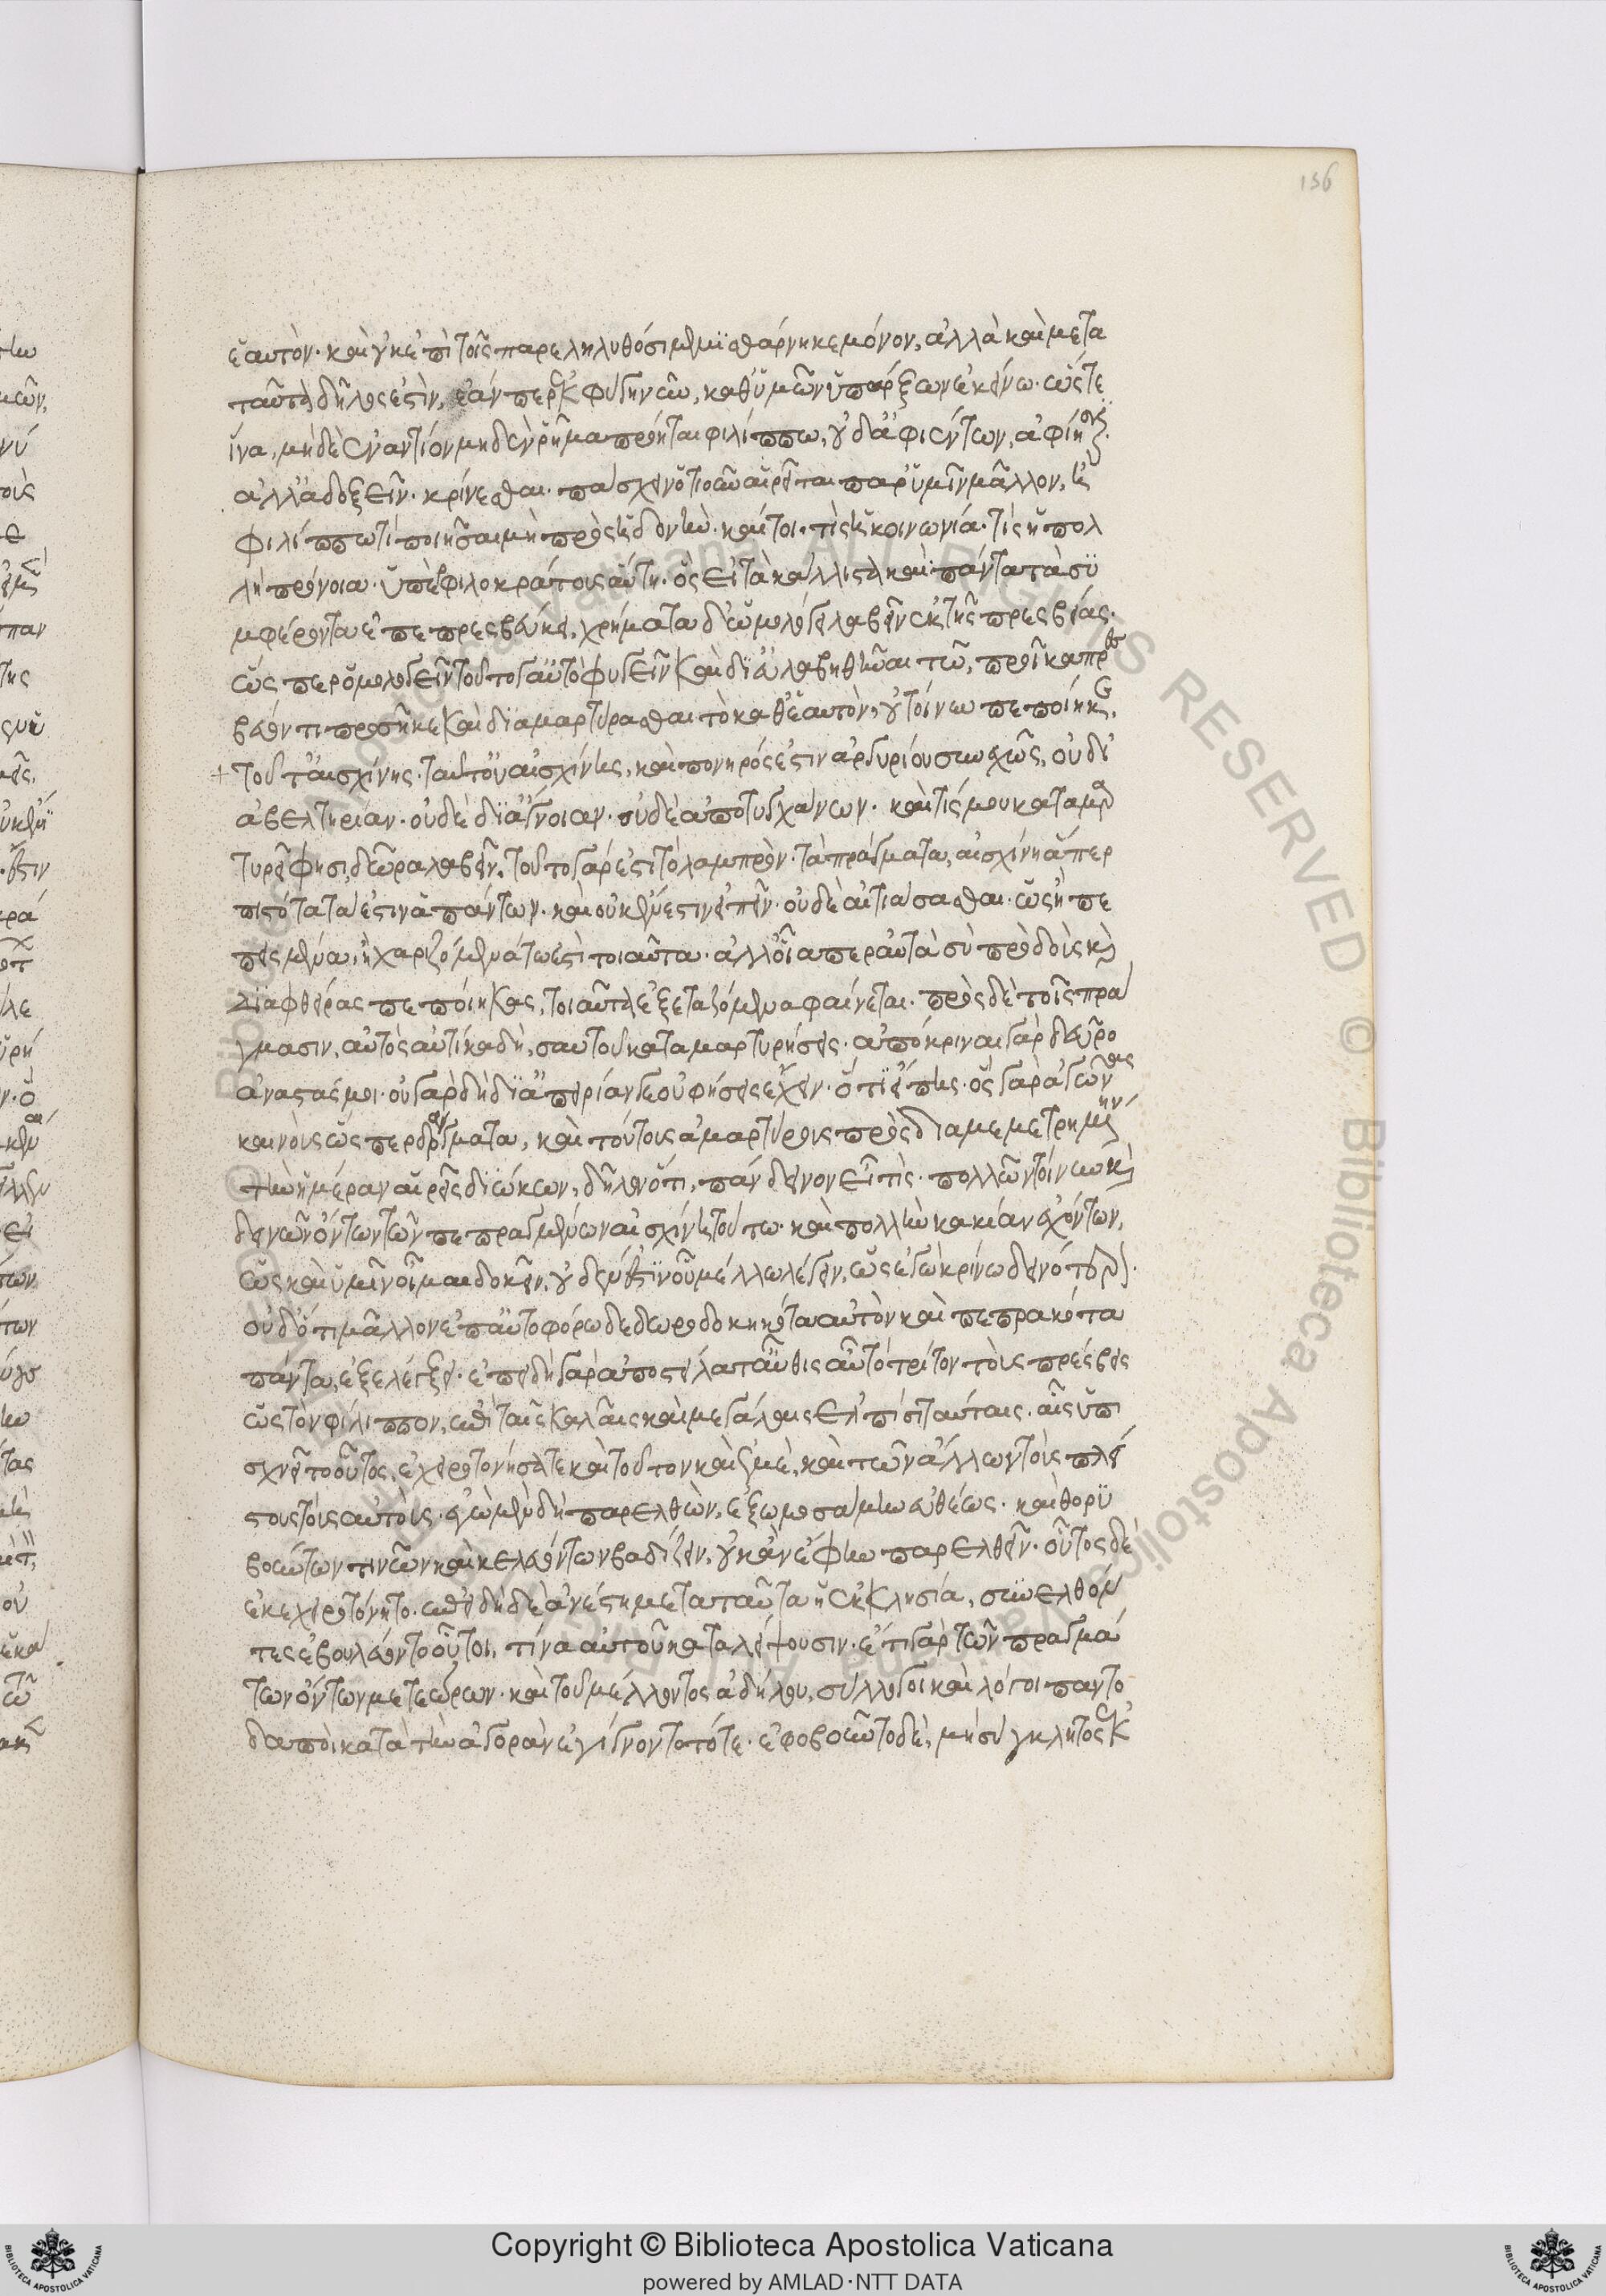 136
ἑαυτὸν· καὶ οὐκ ἐπὶ τοῖς παρεληλυθόσι μὲν ἴσθ' ἄρνηκε μόνον, ἀλλὰ καὶ μετὰ
ταῦτα δῆλός ἐστιν, ἐάνπερ ἐκφύγῃ νῦν, καθ' ὑμῶν ὑπάρξων ἐκείνω· ὥστε
ἵνα, μηδὲ ἐναντίον μηδὲν ῥῆμα πρόηται φιλίππω, οὐδ' ἀφιέντων, ἀφίησιν·
ἀλλ' ἀδοξεῖν· κρίνεσθαι· πάσχειν ὁτιοῦν αἱρεῖται παρ' ὑμῖν μᾶλλον, ἢ
φιλίππω τι ποιῆσαι μὴ πρὸς ἡδονήν· καίτοι· τίς ἡ κοινωνία· τίς ἡ πολ
λὴ πρόνοια· ὑπὲρ φιλοκράτους αὕτη· ὃς εἰ τὰ κάλλιστα καὶ πάντα τὰ συ
μφέροντα ἐπεπρεσβεύκει, χρήματα δ' ὡμολόγει λαβεῖν ἐκ τῆς πρεσβείας·
ὥσπερ ὁμολόγει τοῦτό γ' αὐτὸ φυγεῖν καὶ διευλαβηθῆναι τῶ, προῖκα πρεσ
βεύοντι προσῆκε καὶ διαμαρτύρασθαι τὸ καθ' ἑαυτόν, οὐ τοίνυν πεποίηκε,
τοῦτ' αἰσχίνης· ταῦτ' οὐ αἰσχίνης, καὶ πονηρός ἐστιν ἀργυρίου συνεχῶς, οὐ δι'
ἀβελτηρίαν· οὐδὲ δι' ἄγνοιαν· οὐδὲ ἀποτυγχάνων· καὶ τίς μου καταμαρ
τυρεῖ φησι, δῶρα λαβεῖν· τοῦτο γάρ ἐστι τὸ λαμπρόν· τὰ πράγματα, αἰσχίνη ἅπερ
πιστότατά ἐστιν ἁπάντων· καὶ οὐκ ἔνεστιν εἰπεῖν· οὐδὲ αἰτιάσασθαι· ὡς ἢ πε
πεισμένα, ἢ χαριζόμενά τώ ἐστι τοιαῦτα· ἀλλ' οἷάπερ αὐτὰ σὺ προδοὺς καὶ
διαφθείρας πεποίηκας, τοιαῦτα ἐξεταζόμενα φαίνεται· πρὸς δὲ τοῖς πρά
γμασιν, αὐτὸς αὐτίκα δὴ, σαυτοῦ καταμαρτυρήσεις· ἀπόκριναι γὰρ δεῦρο
ἀναστάς μοι· οὐ γὰρ δὴ δι' ἀπειρίαν γε οὐ φήσεις ἔχειν· ὅ τι εἴπῃς· ὃς γὰρ ἀγῶνας
καινοὺς ὥσπερ δράματα, καὶ τούτους ἀμαρτύρους πρὸς διαμεμετρημένην
τὴν ἡμέραν αἱρεῖς διώκων, δῆλον ὅτι, πάνδεινος εἶ τίς· πολλῶν τοίνυν καὶ
δεινῶν ὄντων τῶν πεπραγμένων αἰσχίνη τούτω· καὶ πολλὴν κακίαν ἐχόντων,
ὡς καὶ ὑμῖν οἶμαι δοκεῖν, οὐδέν ἐστιν οὗ μέλλω λέγειν, ὡς ἐγὼ κρίνω δεινότερον·
οὐδ' ὅτι μᾶλλον ἐπ' αὐτοφόρω δεδωροδοκηκότα αὐτὸν καὶ πεπρακότα
πάντα, ἐξελέγξει· ἐπειδὴ γὰρ ἀποστέλλατ' αὖθις αὖ τὸ τρίτον τοὺς πρέσβεις
ὡς τὸν φίλιππον, ἐπὶ ταῖς καλαῖς καὶ μεγάλαις ἐλπίσι ταύταις· αἷς ὑπι
σχνεῖτο οὗτος, ἐχειροτονήσατε καὶ τοῦτον καὶ ἐμέ, καὶ τῶν ἄλλων τοὺς πλεί
στους τοὺς αὐτούς· ἐγὼ μὲν δὴ παρελθών, ἐξωμοσάμην εὐθέως· καὶ θορυ
βούντων τινῶν καὶ κελευόντων βαδίζειν, οὐκ ἂν ἔφην παρελθεῖν· οὗτος δὲ
ἐκεχειροτόνητο· ἐπειδὴ δὲ ἀνέστη μετὰ ταῦτα ἡ ἐκκλησία, συνελθόν
τες ἐβουλεύοντο οὗτοι, τίνα αὐτοῦ καταλείψουσιν· ἔτι γὰρ τῶν πραγμά
των ὄντων μετεώρων· καὶ τοῦ μέλλοντος ἀδήλου, σύλλογοι καὶ λόγοι παντο
δαποὶ κατὰ τὴν ἀγορὰν ἐγίγνοντο τότε· ἐφοβοῦντο δὲ, μὴ σύγκλητος ἐκ
Copyright © Biblioteca Apostolica Vaticana
powered by AMLAD·NTT DATA